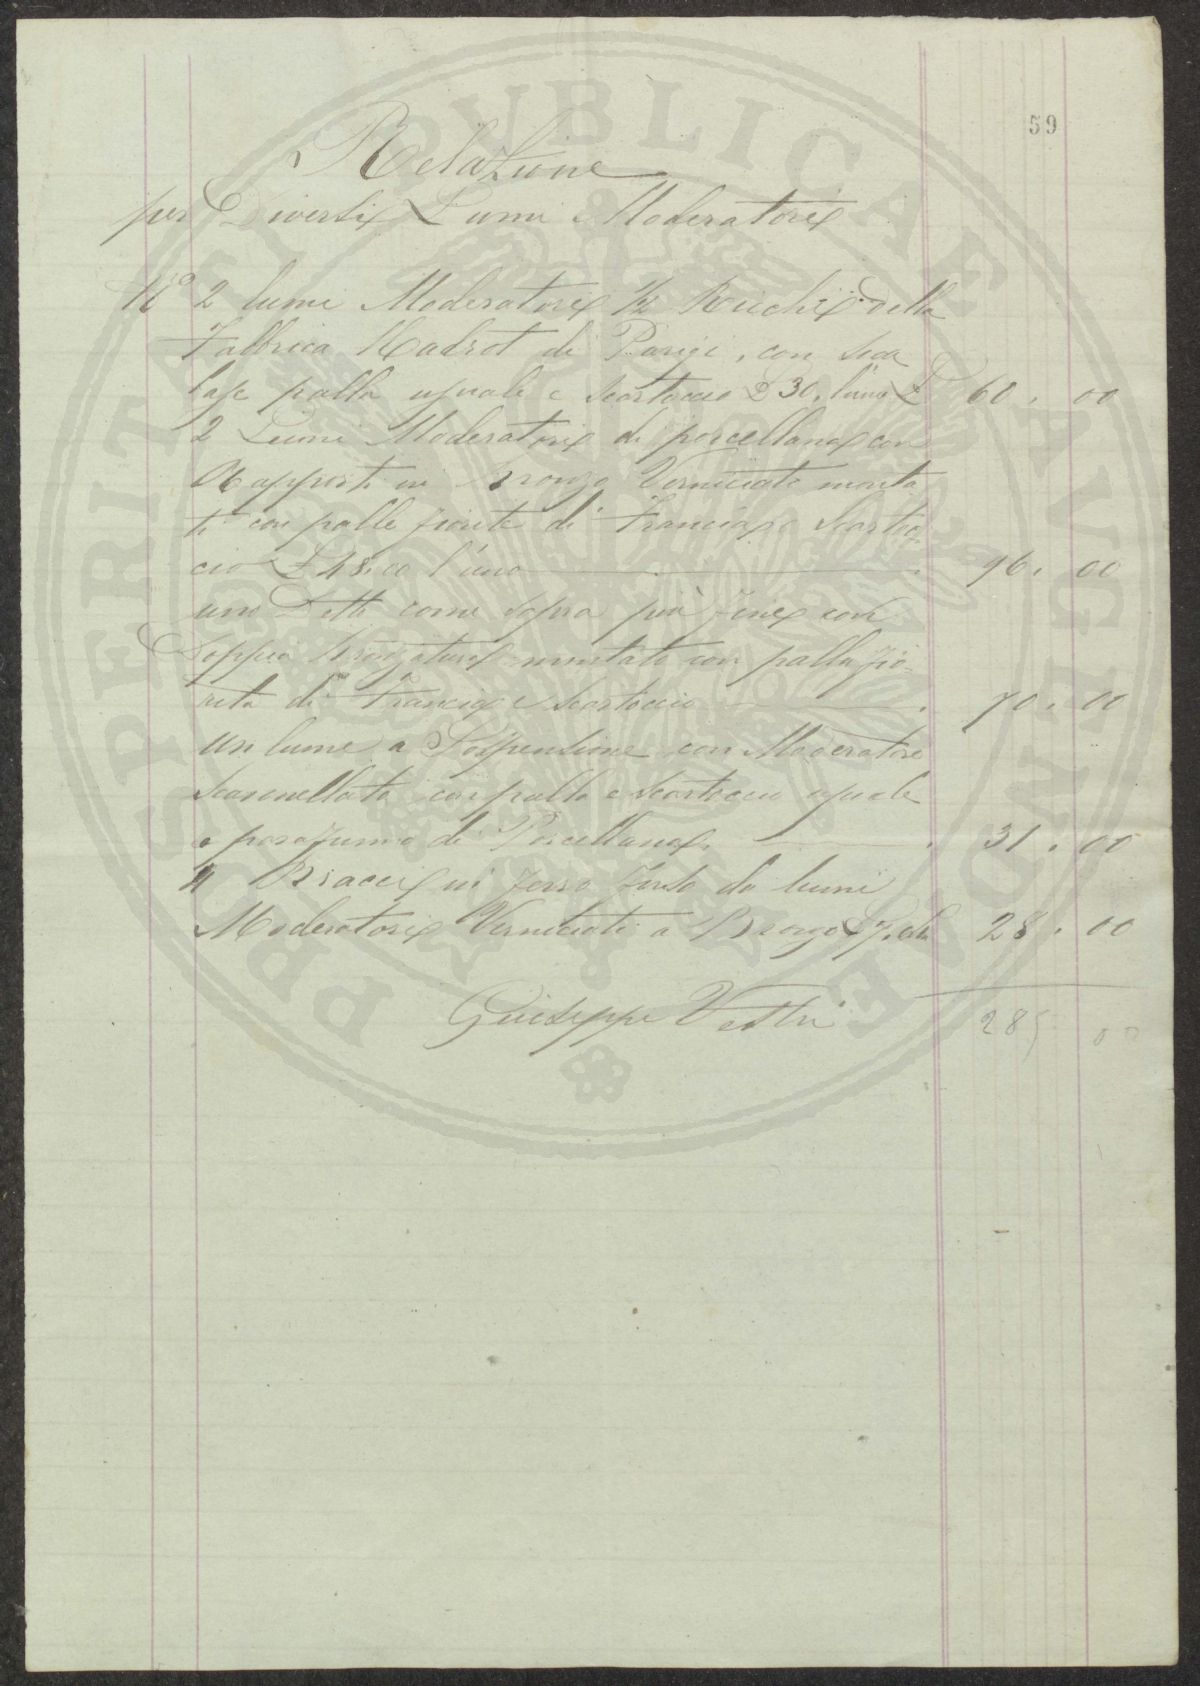 59
Relazione
per Diversi Lumi Moderatori
N.° 2 lumi Moderatori Ricchi della
Fabbrica Hadrot di Parigi, con sua
base palla uguale e scartoccio £ 30. l'uno £ 60. 00
2 Lumi Moderatori di porcellana con
Rapporti in Bronzo Verniciato monta
ti con palle fiorite di Francia e Scartoc
cio £ 48.00 l'uno 96. 00
uno Detto come sopra più fine con
doppia bronzatura montato con palla fio=
rita di Francia e Scartoccio 70. 00
Un lume a Sospensione con Moderatore
Scannellato con palla e scartoccio uguale
e parafumo di Porcellana. 31. 00
4 Bracci in ferro fuso da lumi
Moderatori Verniciati a Bronzo £ 7. 28. 00
Giuseppe Vestri 285 00
PROSPERITATI PVBLICAE AVGENDAE